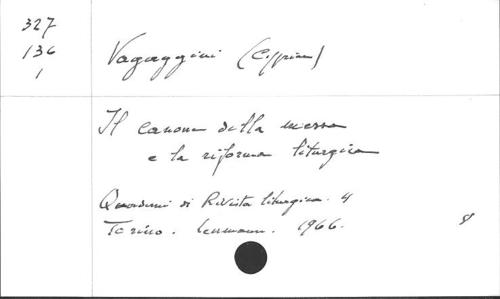 327
136
1
Vagaggini (Cipriano)
Il canone della messa
e la riforma liturgica
Quaderni di Rivista liturgica. 4
Torino. Leumann. 1966.
8